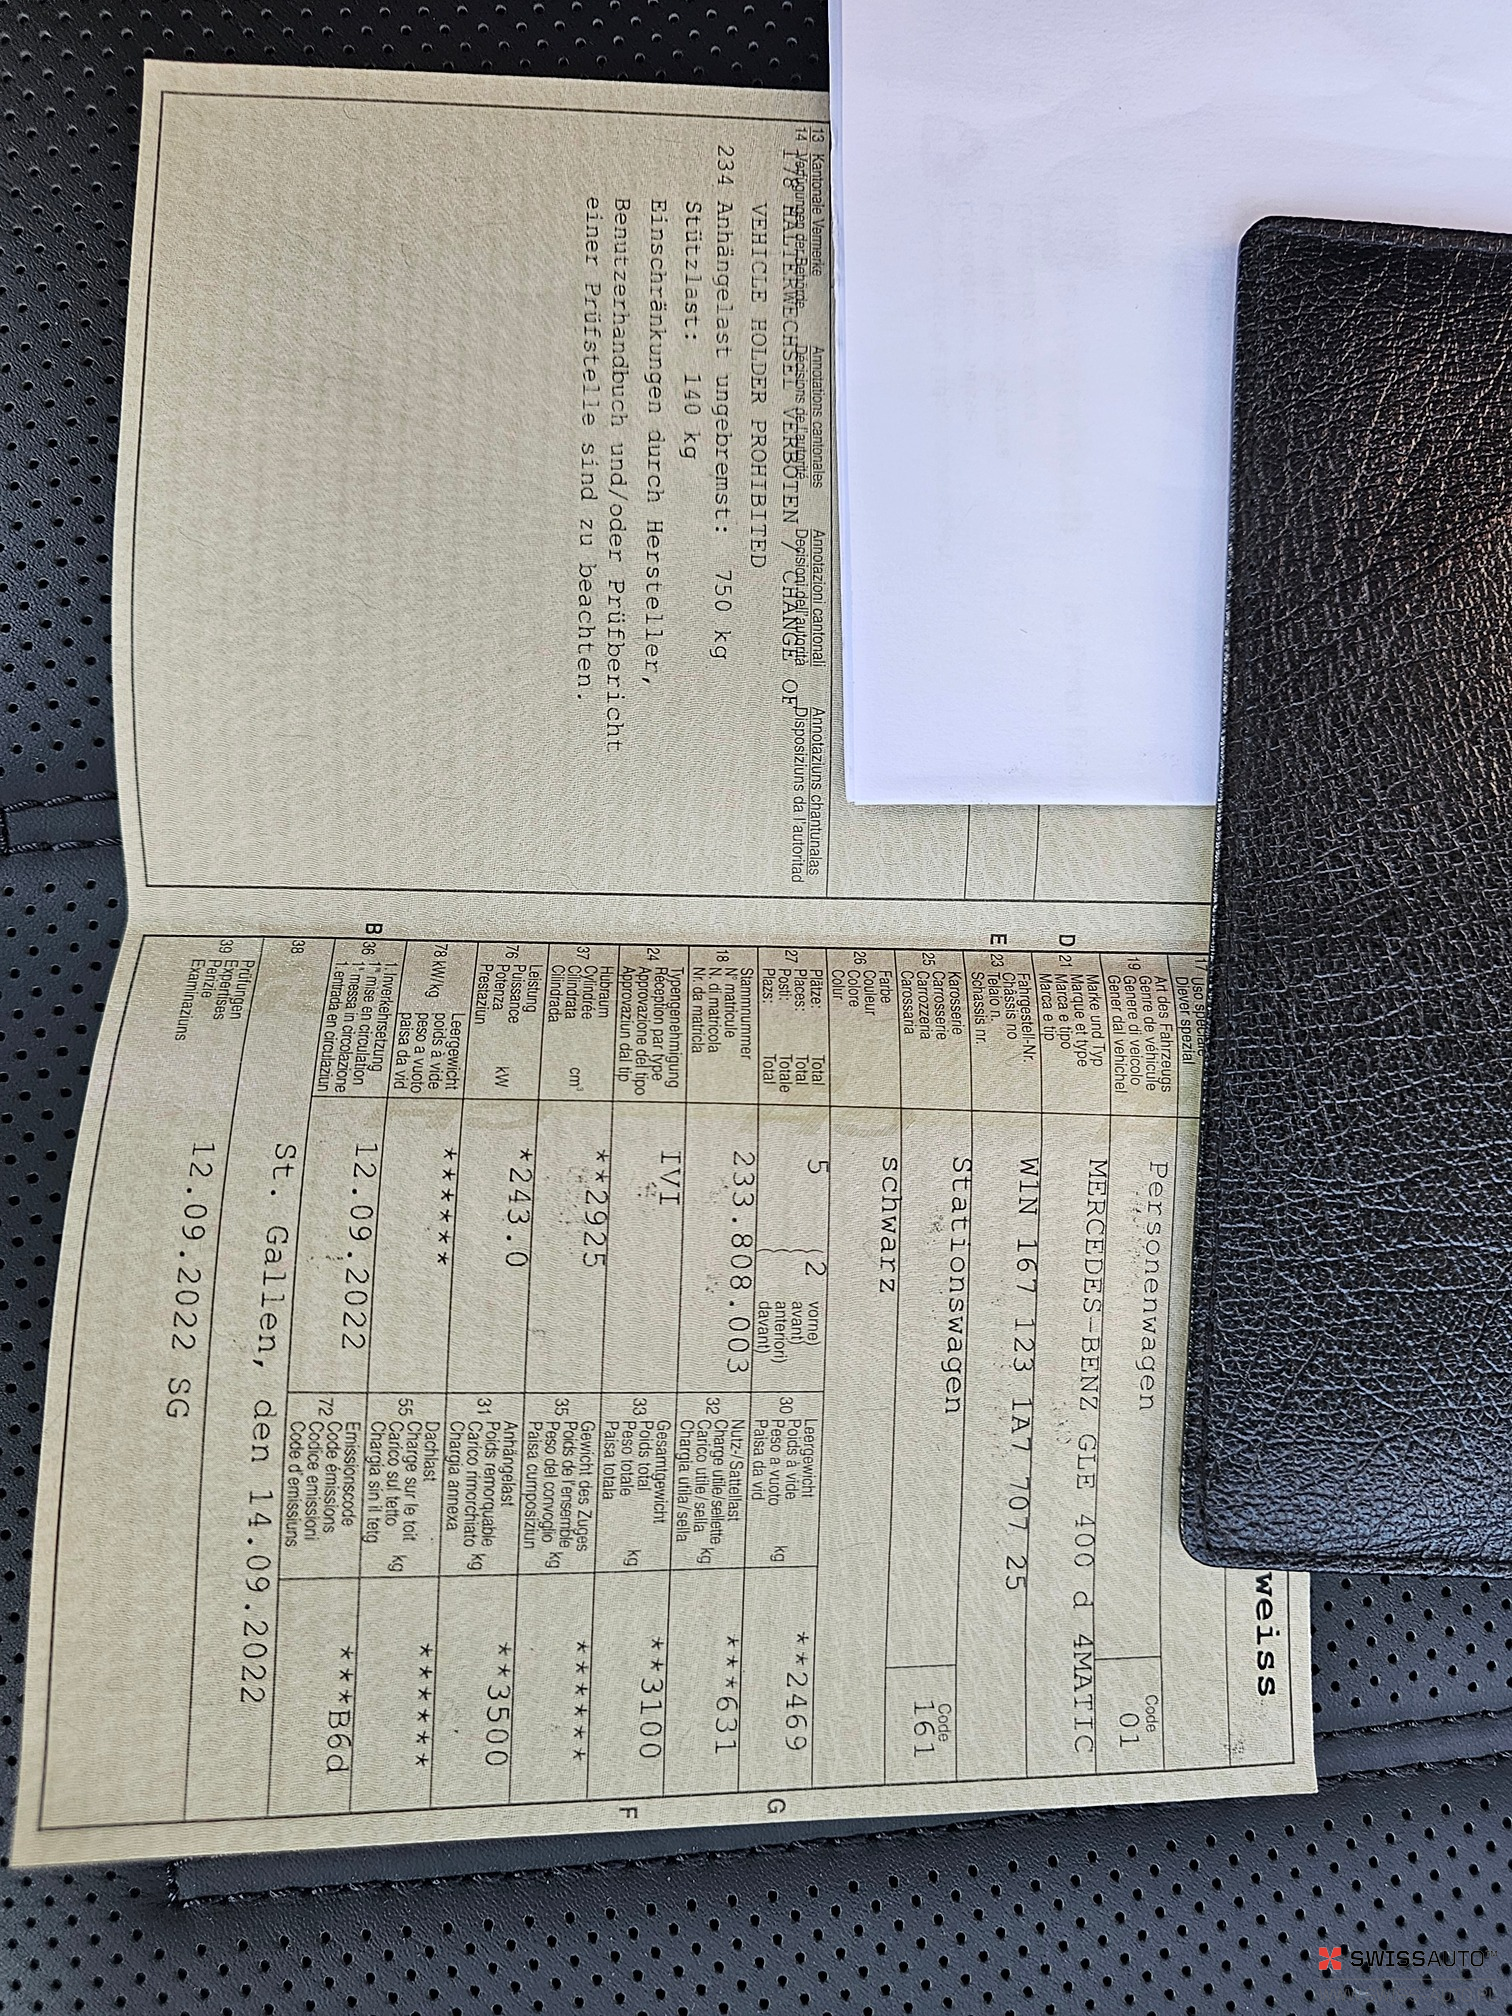 weiss
17 Uso speciale
Diever spezial
Art des Fahrzeugs
Genre de véhicule
19 Genere di veicolo
Gener dal vehichel
Personenwagen
Code
01
D
Marke und Typ
Marque et type
21 Marca e tipo
Marca e tip
MERCEDES-BENZ GLE 400 d 4MATIC
E
Fahrgestell-Nr.
Châssis no
23 Telaio n.
Schassis nr.
W1N 167 123 1A7 707 25
Karosserie
Carrosserie
25 Carrozzeria
Carossaria
Stationswagen
Code
161
Farbe
Couleur
26 Colore
Colur
schwarz
Plätze: Total
Places: Total
27 Posti: Totale
Plazs: Total
5 (2 vorne)
avant)
anteriori)
davant)
Leergewicht
Poids à vide
30 Peso a vuoto kg
Paisa da vid
**2469
G
Stammnummer
N° matricule
18 N. di matricola
Nr. da matricla
233.808.003
Nutz-/Sattellast
Charge utile/sellette
32 Carico utile/sella kg
Chargia utila/sella
***631
Typengenehmigung
Réception par type
24 Approvazione del tipo
Approvaziun dal tip
IVI
Gesamtgewicht
Poids total
33 Peso totale kg
Paisa totala
**3100
F
Hubraum
Cylindrée
37 Cilindrata cm³
Cilindrada
**2925
Gewicht des Zuges
Poids de l'ensemble
35 Peso del convoglio kg
Paisa cumposiziun
******
Leistung
Puissance
76 Potenza kW
Prestaziun
*243.0
Anhängelast
Poids remorquable
31 Carico rimorchiato kg
Chargia annexa
**3500
Leergewicht
78 kW/kg poids à vide
peso a vuoto
paisa da vid
******
Dachlast
Charge sur le toit
55 Carico sul tetto kg
Chargia sin il tetg
******
B
1. Inverkehrsetzung
36 1re mise en circulation
1a messa in circolazione
1. entrada en circulaziun
12.09.2022
Emissionscode
Code émissions
72 Codice emissioni
Code d'emissiuns
***B6d
38
St. Gallen, den 14.09.2022
Prüfungen
39 Expertises
Perizie
Examinaziuns
12.09.2022 SG
13 Kantonale Vermerke Annotations cantonales Annotazioni cantonali Annotaziuns chantunalas
14 Verfügungen der Behörde Décisions de l'autorité Decisioni dell'autorità Disposiziuns da l'autoritad
178 HALTERWECHSEL VERBOTEN / CHANGE OF
VEHICLE HOLDER PROHIBITED
234 Anhängelast ungebremst: 750 kg
Stützlast: 140 kg
Einschränkungen durch Hersteller,
Benutzerhandbuch und/oder Prüfbericht
einer Prüfstelle sind zu beachten.
SWISSAUTO